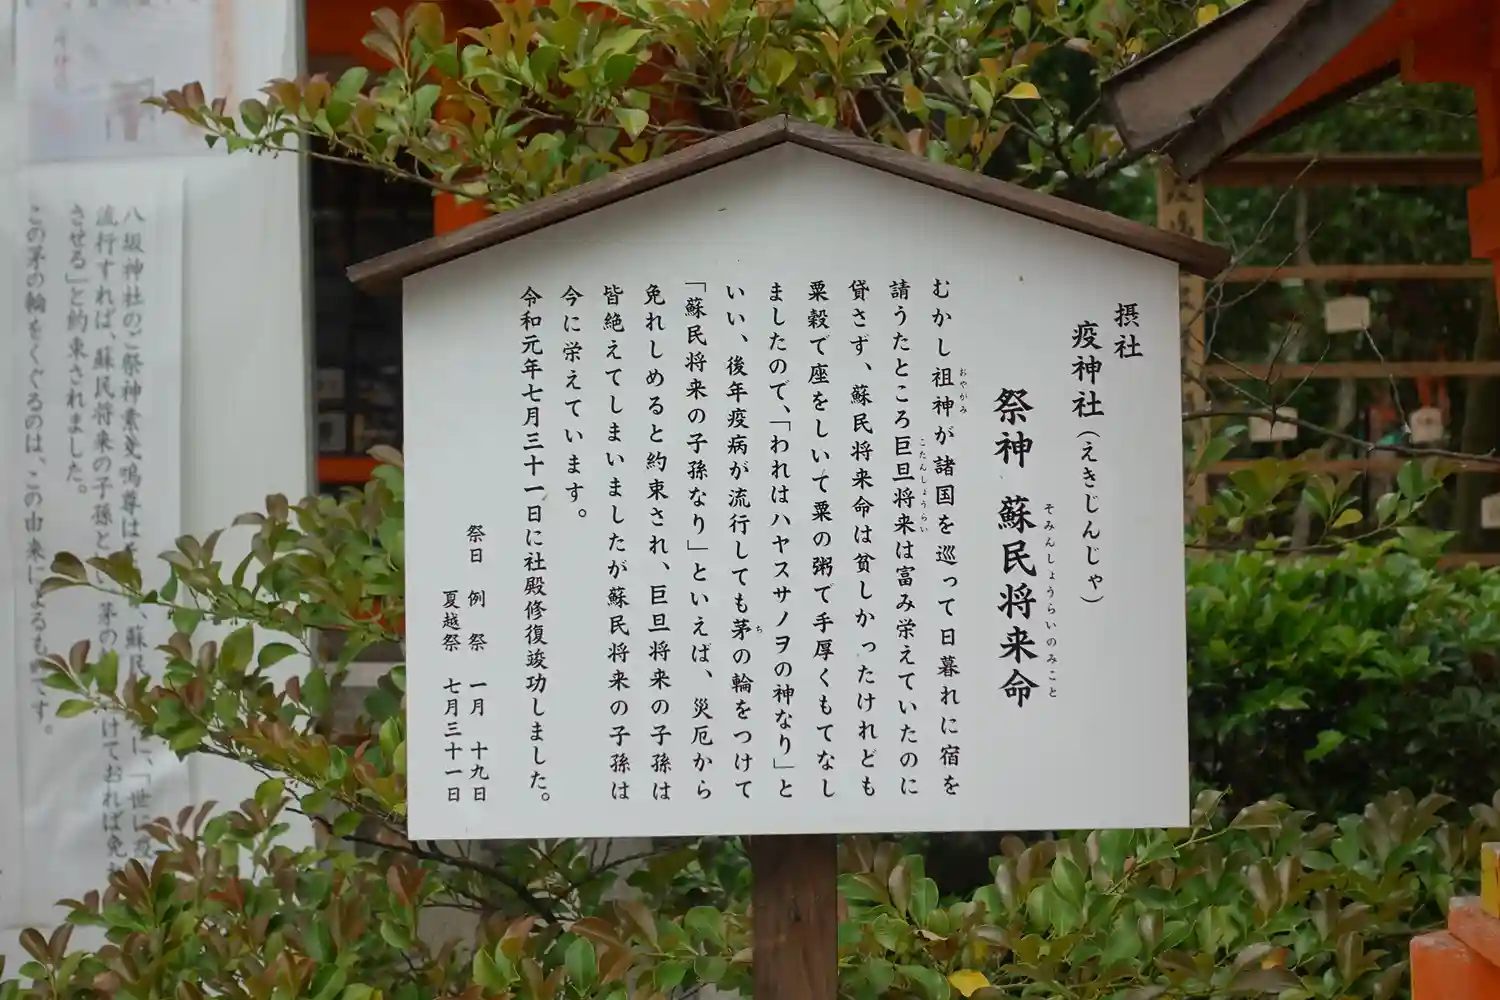 摂社
疫神社(えきじんじゃ)
祭神 蘇民将来命
そみんしょうらいのみこと
むかし祖神が諸国を巡って日暮れに宿を
おやがみ
請うたところ巨旦将来は富み栄えていたのに
こたんしょうらい
貸さず、蘇民将来命は貧しかったけれども
粟穀で座をしいて粟の粥で手厚くもてなし
ましたので、「われはハヤスサノヲの神なり」と
いい、後年疫病が流行しても茅の輪をつけて
ち
「蘇民将来の子孫なり」といえば、災厄から
免れしめると約束され、巨旦将来の子孫は
皆絶えてしまいましたが蘇民将来の子孫は
今に栄えています。
令和元年七月三十一日に社殿修復竣功しました。
祭日 例祭 一月 十九日
夏越祭 七月三十一日
八坂神社のご祭神素戔嗚尊は
蘇民
に、「世に疫
流行すれば、蘇民将来の子孫と
茅の
けておれば免
させる」と約束されました。
この茅の輪をくぐるのは、この由来によるものです。